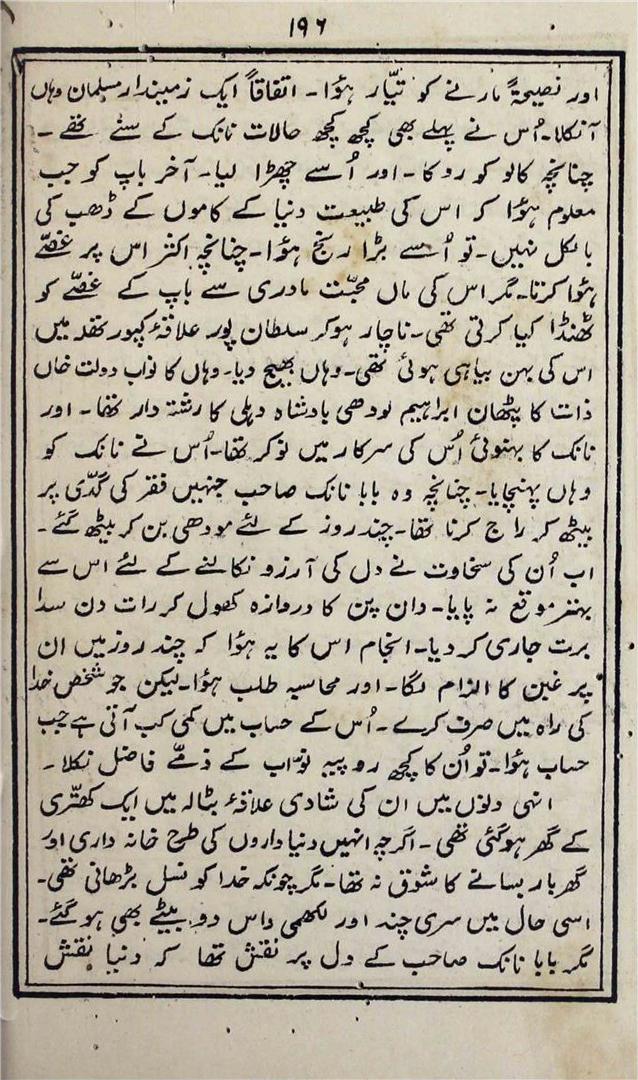 ۱۹۶
اور نصیحۃً مارنے کو تیّار ہؤا۔ اتفاقاً ایک زمیندار مسلمان وہاں
آنکلا۔ اُس نے پہلے بھی کچھ کچھ حالات نانک کے سنے تھے۔
چنانچہ کالو کو روکا۔ اور اُسے چھڑا لیا۔ آخر باپ کو جب
معلوم ہؤا کہ اس کی طبیعت دنیا کے کاموں کے ڈھب کی
بالکل نہیں۔ تو اُسے بڑا رنج ہؤا۔ چنانچہ اکثر اس پر غصّے
ہؤا کرتا۔ مگر اس کی ماں محبّت مادری سے باپ کے غصّے کو
ٹھنڈا کیا کرتی تھی۔ ناچار ہوکر سلطان پور علاقۂ کپور تھلہ میں
اس کی بہن بیاہی ہوئی تھی۔ وہاں بھیج دیا۔ وہاں کا نواب دولت خاں
ذات کا پٹھان ابراہیم لودھی بادشاہ دہلی کا رشتہ دار تھا۔ اور
نانک کا بہنوئی اُس کی سرکار میں نوکر تھا۔ اُس نے نانک کو
وہاں پہنچایا۔ چنانچہ وہ بابا نانک صاحب جنہیں فقر کی گدّی پر
بیٹھ کر راج کرنا تھا۔ چند روز کے لئے مودھی بن کر بیٹھ گئے۔
اب اُن کی سخاوت نے دل کی آرزو نکالنے کے لئے اس سے
بہتر موقع نہ پایا۔ دان پن کا دروازہ کھول کر رات دن سدا
برت جاری کر دیا۔ انجام اس کا یہ ہؤا کہ چند روز میں ان
پر غبن کا الزام لگا۔ اور محاسبہ طلب ہؤا۔ لیکن جو شخص خدا
کی راہ میں صرف کرے۔ اُس کے حساب میں کمی کب آتی ہے جب
حساب ہؤا۔ تو اُن کا کچھ روپیہ نوّاب کے ذمّے فاضل نکلا۔
انہی دنوں میں ان کی شادی علاقۂ بٹالہ میں ایک کھتّری
کے گھر ہوگئی تھی۔ اگرچہ انہیں دنیاداروں کی طرح خانہ داری اور
گھر بار بسانے کا شوق نہ تھا۔ مگر چونکہ خدا کو نسل بڑھانی تھی۔
اسی حال میں سری چند اور لکھمی داس دو بیٹے بھی ہو گئے۔
مگر بابا نانک صاحب کے دل پر نقش تھا کہ دنیا نقش